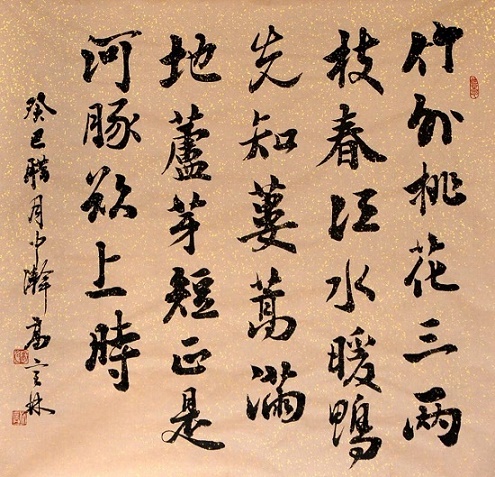 竹外桃花三兩
枝春江水暖鴨
先知蔞蒿滿
地蘆芽短正是
河豚欲上時
癸巳腊月中澣高林